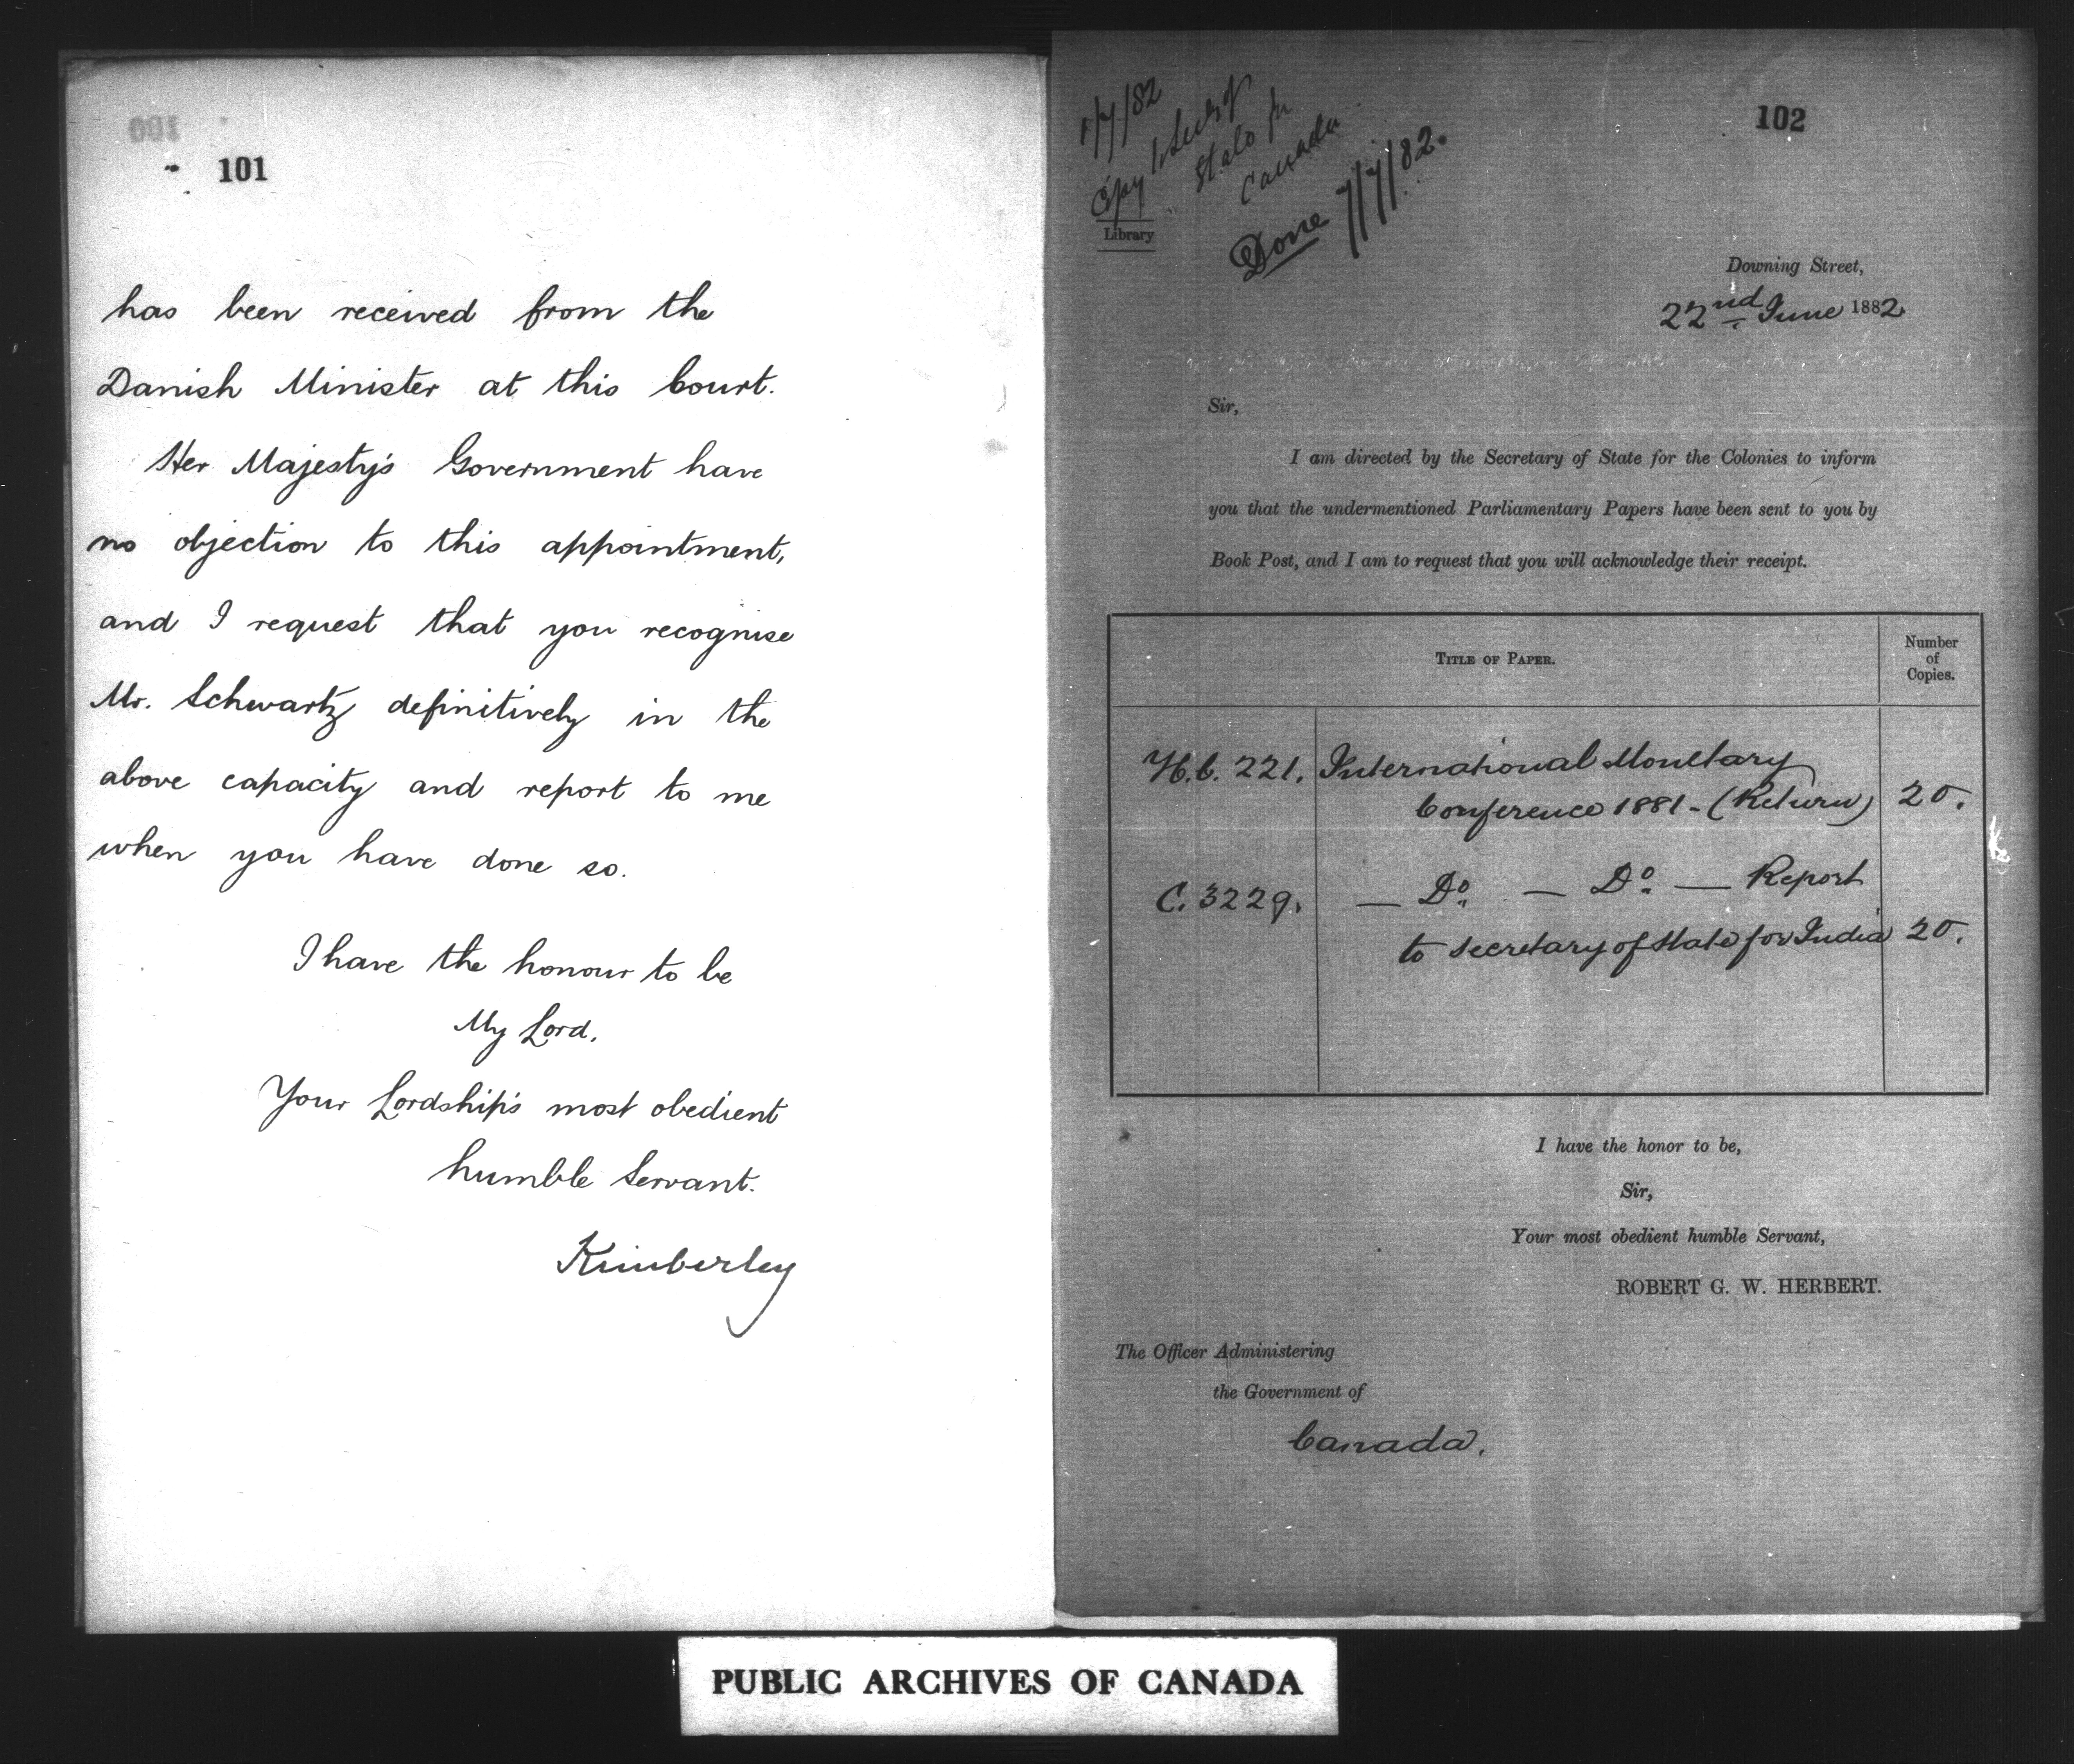 101
has been received from the
Danish Minister at this Court.
Her Majesty's Government have
no objection to this appointment,
and I request that you recognise
Mr. Schwartz definitively in the
above capacity and report to me
when you have done so.
I have the honour to be
My Lord,
Your Lordship's most obedient
humble Servant.
Kimberley
102
/7/82
Copy
State for
Canada
Library
Done 7/7/82.
Downing Street,
22nd June 1882.
Sir,
I am directed by the Secretary of State for the Colonies to inform
you that the undermentioned Parliamentary Papers have been sent to you by
Book Post, and I am to request that you will acknowledge their receipt.
TITLE OF PAPER.
Number
of
Copies.
H.C. 221. International Monetary
Conference 1881 - (Return) 20.
C. 3229. — Do. — Do. — Report
to Secretary of State for India 20.
I have the honor to be,
Sir,
Your most obedient humble Servant,
ROBERT G. W. HERBERT.
The Officer Administering
the Government of
Canada.
PUBLIC ARCHIVES OF CANADA